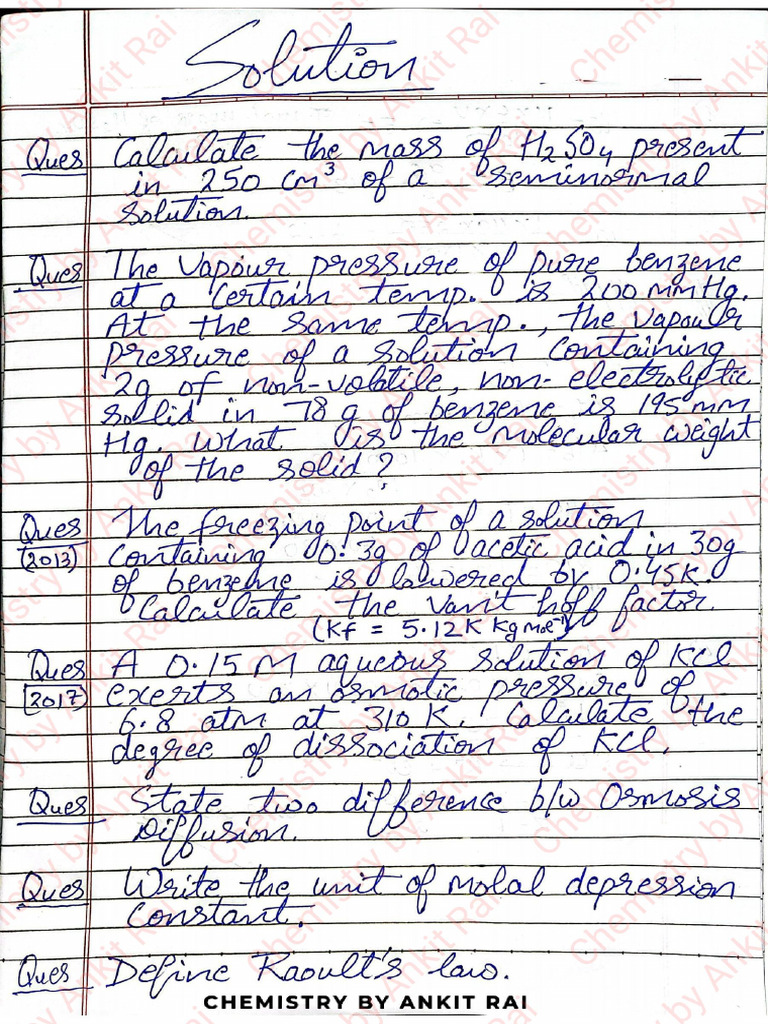 Solution
Ques Calculate the mass of H₂SO₄ present
in 250 cm³ of a seminormal
solution.
Ques The Vapour pressure of pure benzene
at a certain temp. is 200 mmHg.
At the same temp., the vapour
pressure of a solution containing
2g of non-volatile, non-electrolytic
solid in 78 g of benzene is 195 mm
Hg. What is the molecular weight
of the solid?
Ques The freezing point of a solution
(2013) containing 0.3g of acetic acid in 30g
of benzene is lowered by 0.45K.
Calculate the van't hoff factor.
(Kf = 5.12 K Kg mol⁻¹)
Ques A 0.15 M aqueous solution of KCl
(2017) exerts an osmotic pressure of
6.8 atm at 310 K. Calculate the
degree of dissociation of KCl.
Ques State two difference b/w Osmosis
Diffusion.
Ques Write the unit of molal depression
constant.
Ques Define Raoult's law.
CHEMISTRY BY ANKIT RAI
Chemistry by Ankit Rai